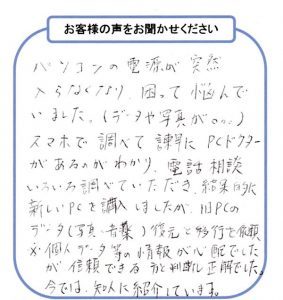 お客様の声をお聞かせください
パソコンの電源が突然
入らなくなり、困って悩んで
いました。(データや写真が○○:)
スマホで調べて諫早にPCドクター
があるのがわかり、電話相談
いろいろ調べていただき、結果的に
新しいPCを購入しましたが、旧PCの
データ(写真、音楽)復元と移行を依頼
※個人データ等の情報が心配でした
が信頼できる方と判断し正解でした。
今では、知人に紹介しています。